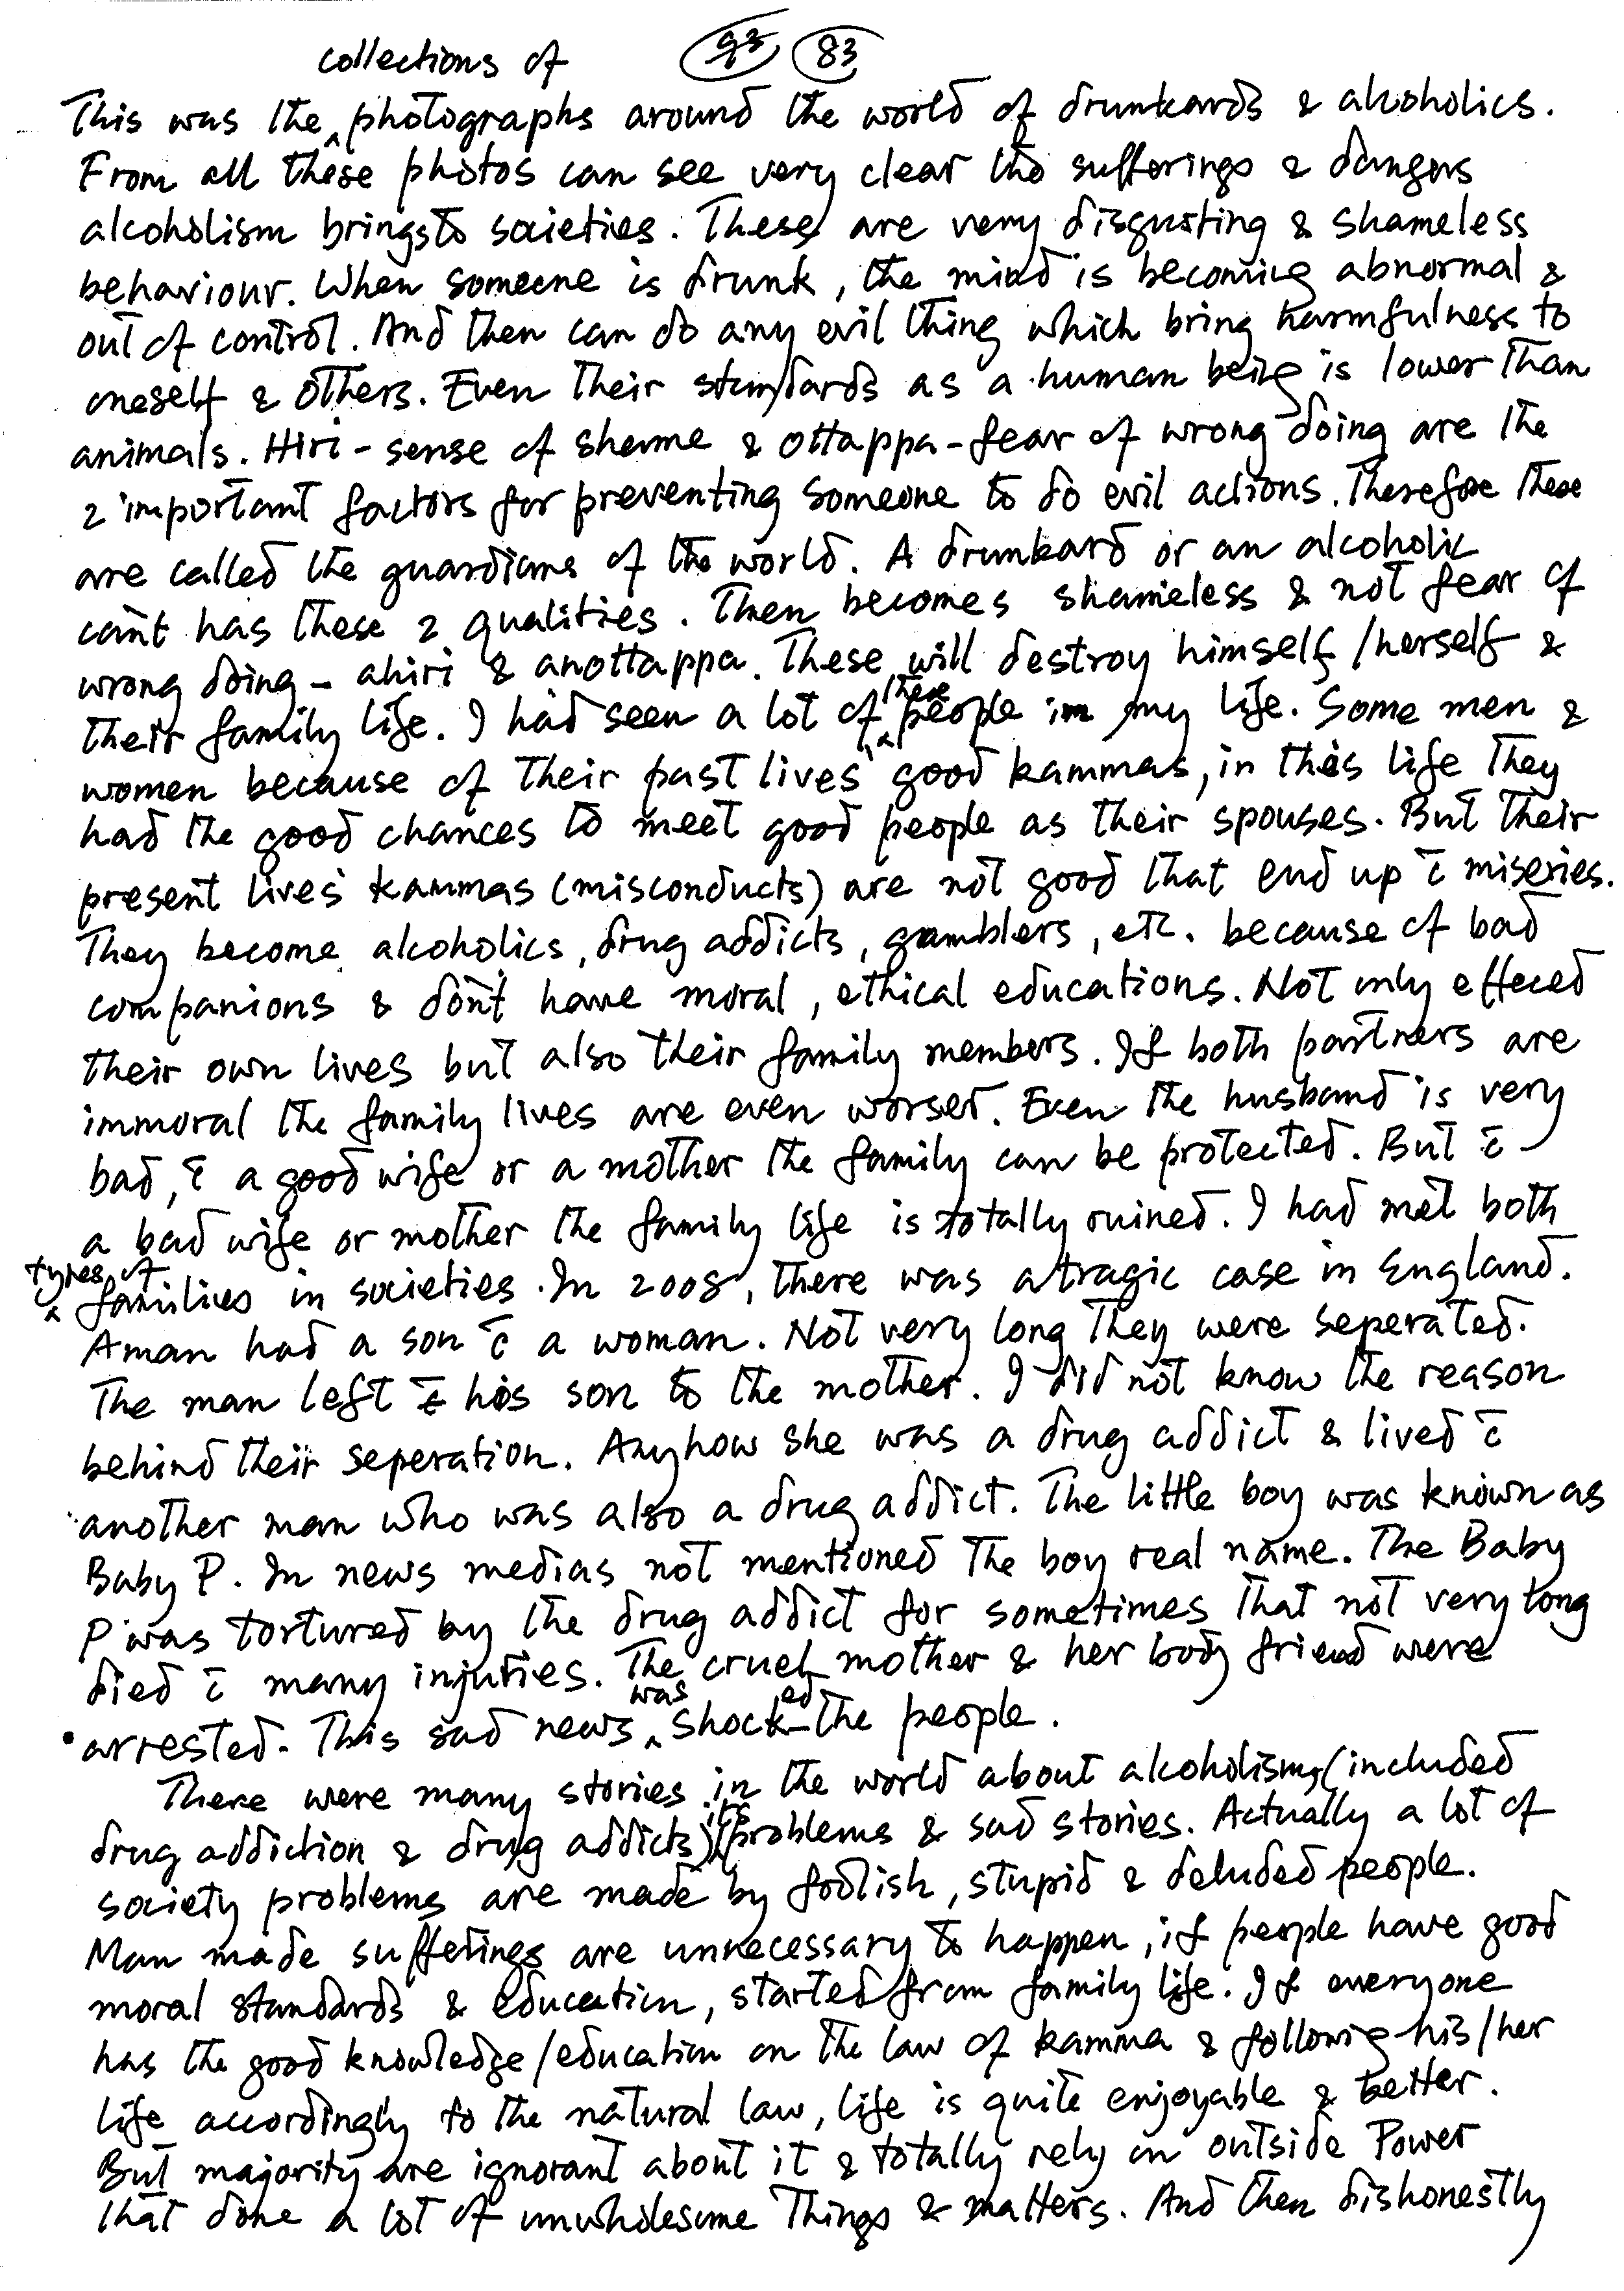 collections of 93 83
This was the ^ photographs around the world of drunkards & alcoholics.
From all these photos can see very clear the sufferings & dangers
alcoholism brings to societies. These are very disgusting & shameless
behaviour. When someone is drunk, the mind is becoming abnormal &
out of control. And then can do any evil thing which bring harmfulness to
oneself & others. Even their standards as a human being is lower than
animals. Hiri - sense of shame & ottappa - fear of wrong doing are the
2 important factors for preventing someone to do evil actions. Therefore these
are called the guardians of the world. A drunkard or an alcoholic
can't has these 2 qualities. Then becomes shameless & not fear of
wrong doing - ahiri & anottappa. These will destroy himself/herself &
their family life. I had seen a lot of these people in my life. Some men &
women because of their past lives' good kammas, in this life they
had the good chances to meet good people as their spouses. But their
present lives' kammas (misconducts) are not good that end up c̄ miseries.
They become alcoholics, drug addicts, gamblers, etc. because of bad
companions & don't have moral, ethical educations. Not only effeced
their own lives but also their family members. If both partners are
immoral the family lives are even worset. Even the husband is very
bad, c̄ a good wife or a mother the family can be protected. But c̄
a bad wife or mother the family life is totally ruined. I had met both
types of families in societies. In 2008, there was a tragic case in England.
A man had a son c̄ a woman. Not very long they were seperated.
The man left c̄ his son to the mother. I did not know the reason
behind their seperation. Anyhow she was a drug addict & lived c̄
another man who was also a drug addict. The little boy was known as
Baby P. In news medias not mentioned the boy real name. The Baby
P was tortured by the drug addict for sometimes that not very long
died c̄ many injuries. The cruel mother & her boy friend were
arrested. This sad news was shocked the people.
There were many stories in the world about alcoholism (included
drug addiction & drug addicts) its problems & sad stories. Actually a lot of
society problems are made by foolish, stupid & deluded people.
Man made sufferings are unnecessary to happen, if people have good
moral standards & education, started from family life. If everyone
has the good knowledge/education on the law of kamma & following his/her
life accordingly to the natural law, life is quite enjoyable & better.
But majority are ignorant about it & totally rely on outside Power
that done a lot of unwholesome things & matters. And then dishonestly